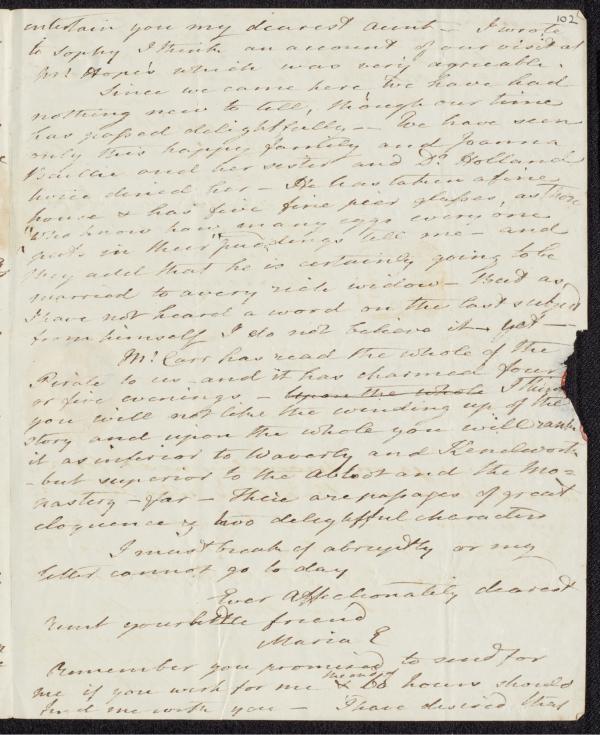 102
entertain you my dearest aunt — I wrote
to Sophy I think an account of our visit at
Mr. Hope's which was very agreeable.
Since we came here, We have had
nothing new to tell, though our time
has passed delightfully — We have seen
only this happy family and Joanna
Baillie and her sister and Dr. Holland
twice dined here — He has taken a fine
house & has five fine peer glasses, as those
"who know how many eggs every one
puts in their puddings" tell me — and
they add that he is certainly going to be
married to a very rich widow — But as
I have not heard a word on the last subject
from himself I do not believe it — yet —
Mr. Carr has read the whole of the
Pirate to us and it has charmed four
or five evenings — Upon the whole I think
you will not like the winding up of the
story and upon the whole you will rank
it as inferior to Waverly and Kenelworth
- but superior to the Abbot and the Mo=
nastery — far — There are passages of great
eloquence & two delightful characters
I must break of abruptly or my
letter cannot go to day
Ever affectionately dearest
Aunt your little friend
Maria E
Remember you promised to send for
me if you wish for me & hours should
find me with you — I have desired that